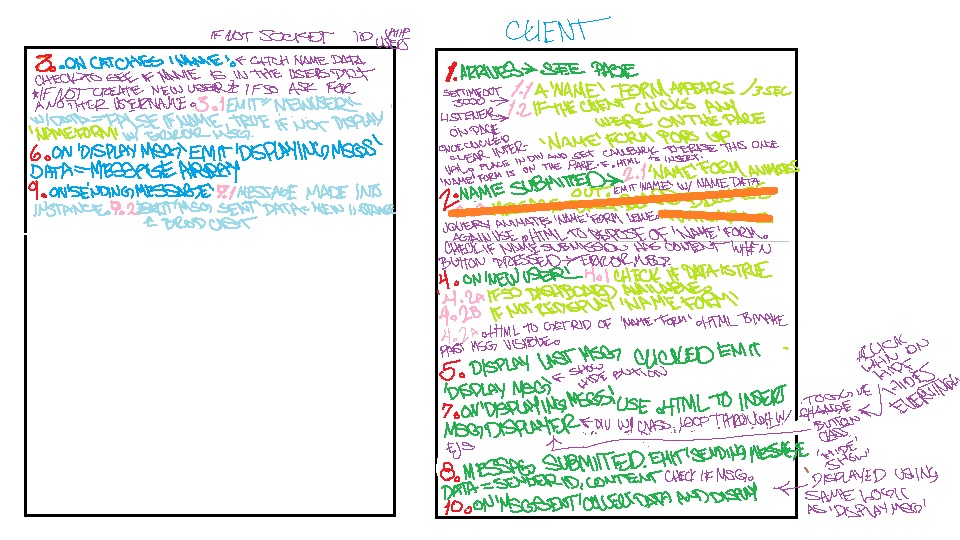 IF NOT SOCKET ID
USERS
3. ON CATCHES 'NAME'. CATCH NAME DATA
CHECK TO SEE IF NAME IS IN THE USERS DICT
*IF NOT CREATE NEW USER & IF SO ASK FOR
ANOTHER USERNAME. 3.1 EMIT 'NEWUSER'
W/DATA = FALSE IF NAME, TRUE IF NOT DISPLAY
'NAMEFORM' W/ ERROR MSG.
6. ON 'DISPLAY MSG' EMIT 'DISPLAYING MSGS'
DATA = MESSAGE ARRAY
9. ON 'SENDING MESSAGE' 9.1 MESSAGE MADE INTO
INSTANCE. 9.2 EMIT 'MSG SENT' DATA = NEW INSTANCE
BROADCAST
CLIENT
1. ARRIVES → SEE PAGE
SETTIMEOUT
3000 →
1.1 A 'NAME' FORM APPEARS / 3 SEC
LISTENER →
ON PAGE
1.2 IF THE CLIENT CLICKS ANY
WHERE ON THE PAGE
'NAME' FORM POPS UP
ONCE CLICKED
CLEAR INTER-
VAL. PLACE IN DIV AND SET CALLBACK TO ERASE THIS ONCE
'NAME' FORM IS ON THE PAGE. .HTML TO INSERT.
2. NAME SUBMITTED → 2.1 'NAME' FORM ANIMATES
OUT. EMIT 'NAME' W/ NAME DATA
JQUERY ANIMATE 'NAME' FORM LEAVE.
AGAIN USE .HTML TO DISPOSE OF 'NAME' FORM.
CHECK IF NAME SUBMISSION HAS CONTENT WHEN
BUTTON PRESSED → ERROR MSG?
4. ON 'NEW USER' 4.1 CHECK IF DATA IS TRUE
4.2A IF SO DASHBOARD AVAILABLE.
4.2B IF NOT REDISPLAY 'NAME FORM'
4.2A .HTML TO GET RID OF 'NAME-FORM' .HTML TO MAKE
PAST MSG VISIBLE.
5. DISPLAY LAST MSG CLICKED EMIT
'DISPLAY MSG' SHOW
HIDE BUTTON
7. ON 'DISPLAYING MSGS' USE .HTML TO INSERT
MSG DISPLAYER DIV W/ CLASS, LOOP THROUGH W/
EJS
8. MESSAGE SUBMITTED. EMIT 'SENDING MESSAGE'
DATA = SENDER ID, CONTENT CHECK IF MSG.
10. ON 'MSG SENT' COLLECT DATA AND DISPLAY
CLICK
WHEN ON
HIDE
HIDES
EVERYTHING
TOGGLE
CHANGE
BUTTON
CLASS
'HIDE'
'SHOW'
DISPLAYED USING
SAME LOGIC
AS 'DISPLAY MSG'